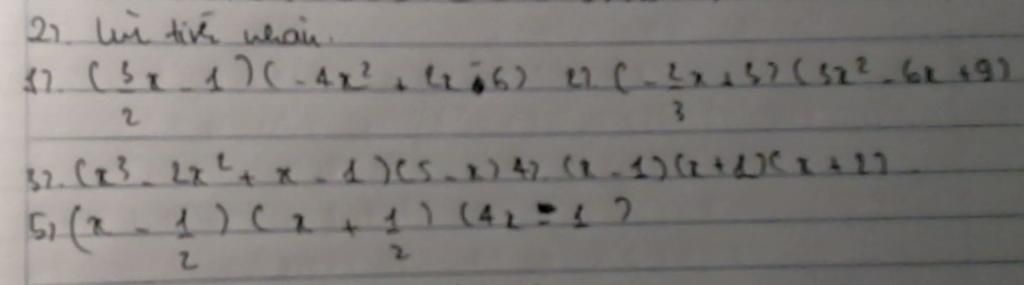 2). làm tính nhân.
1). (3/2 x - 1)(-4x² + 2x - 6) 2). (-2/3 x + 3)(3x² - 6x + 9)
3). (x³ - 2x² + x - 1)(5 - x) 4). (x - 1)(x + 1)(x + 2)
5) (x - 1/2)(x + 1/2)(4x - 1)